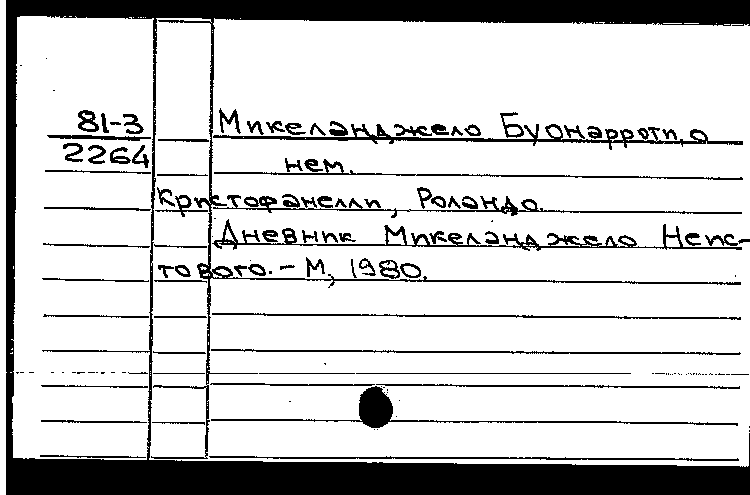 81-3 Микеланджело Буонарроти, о
2264 нем.
Кристофанелли, Роландо.
Дневник Микеланджело Неис-
тового. - М, 1980.